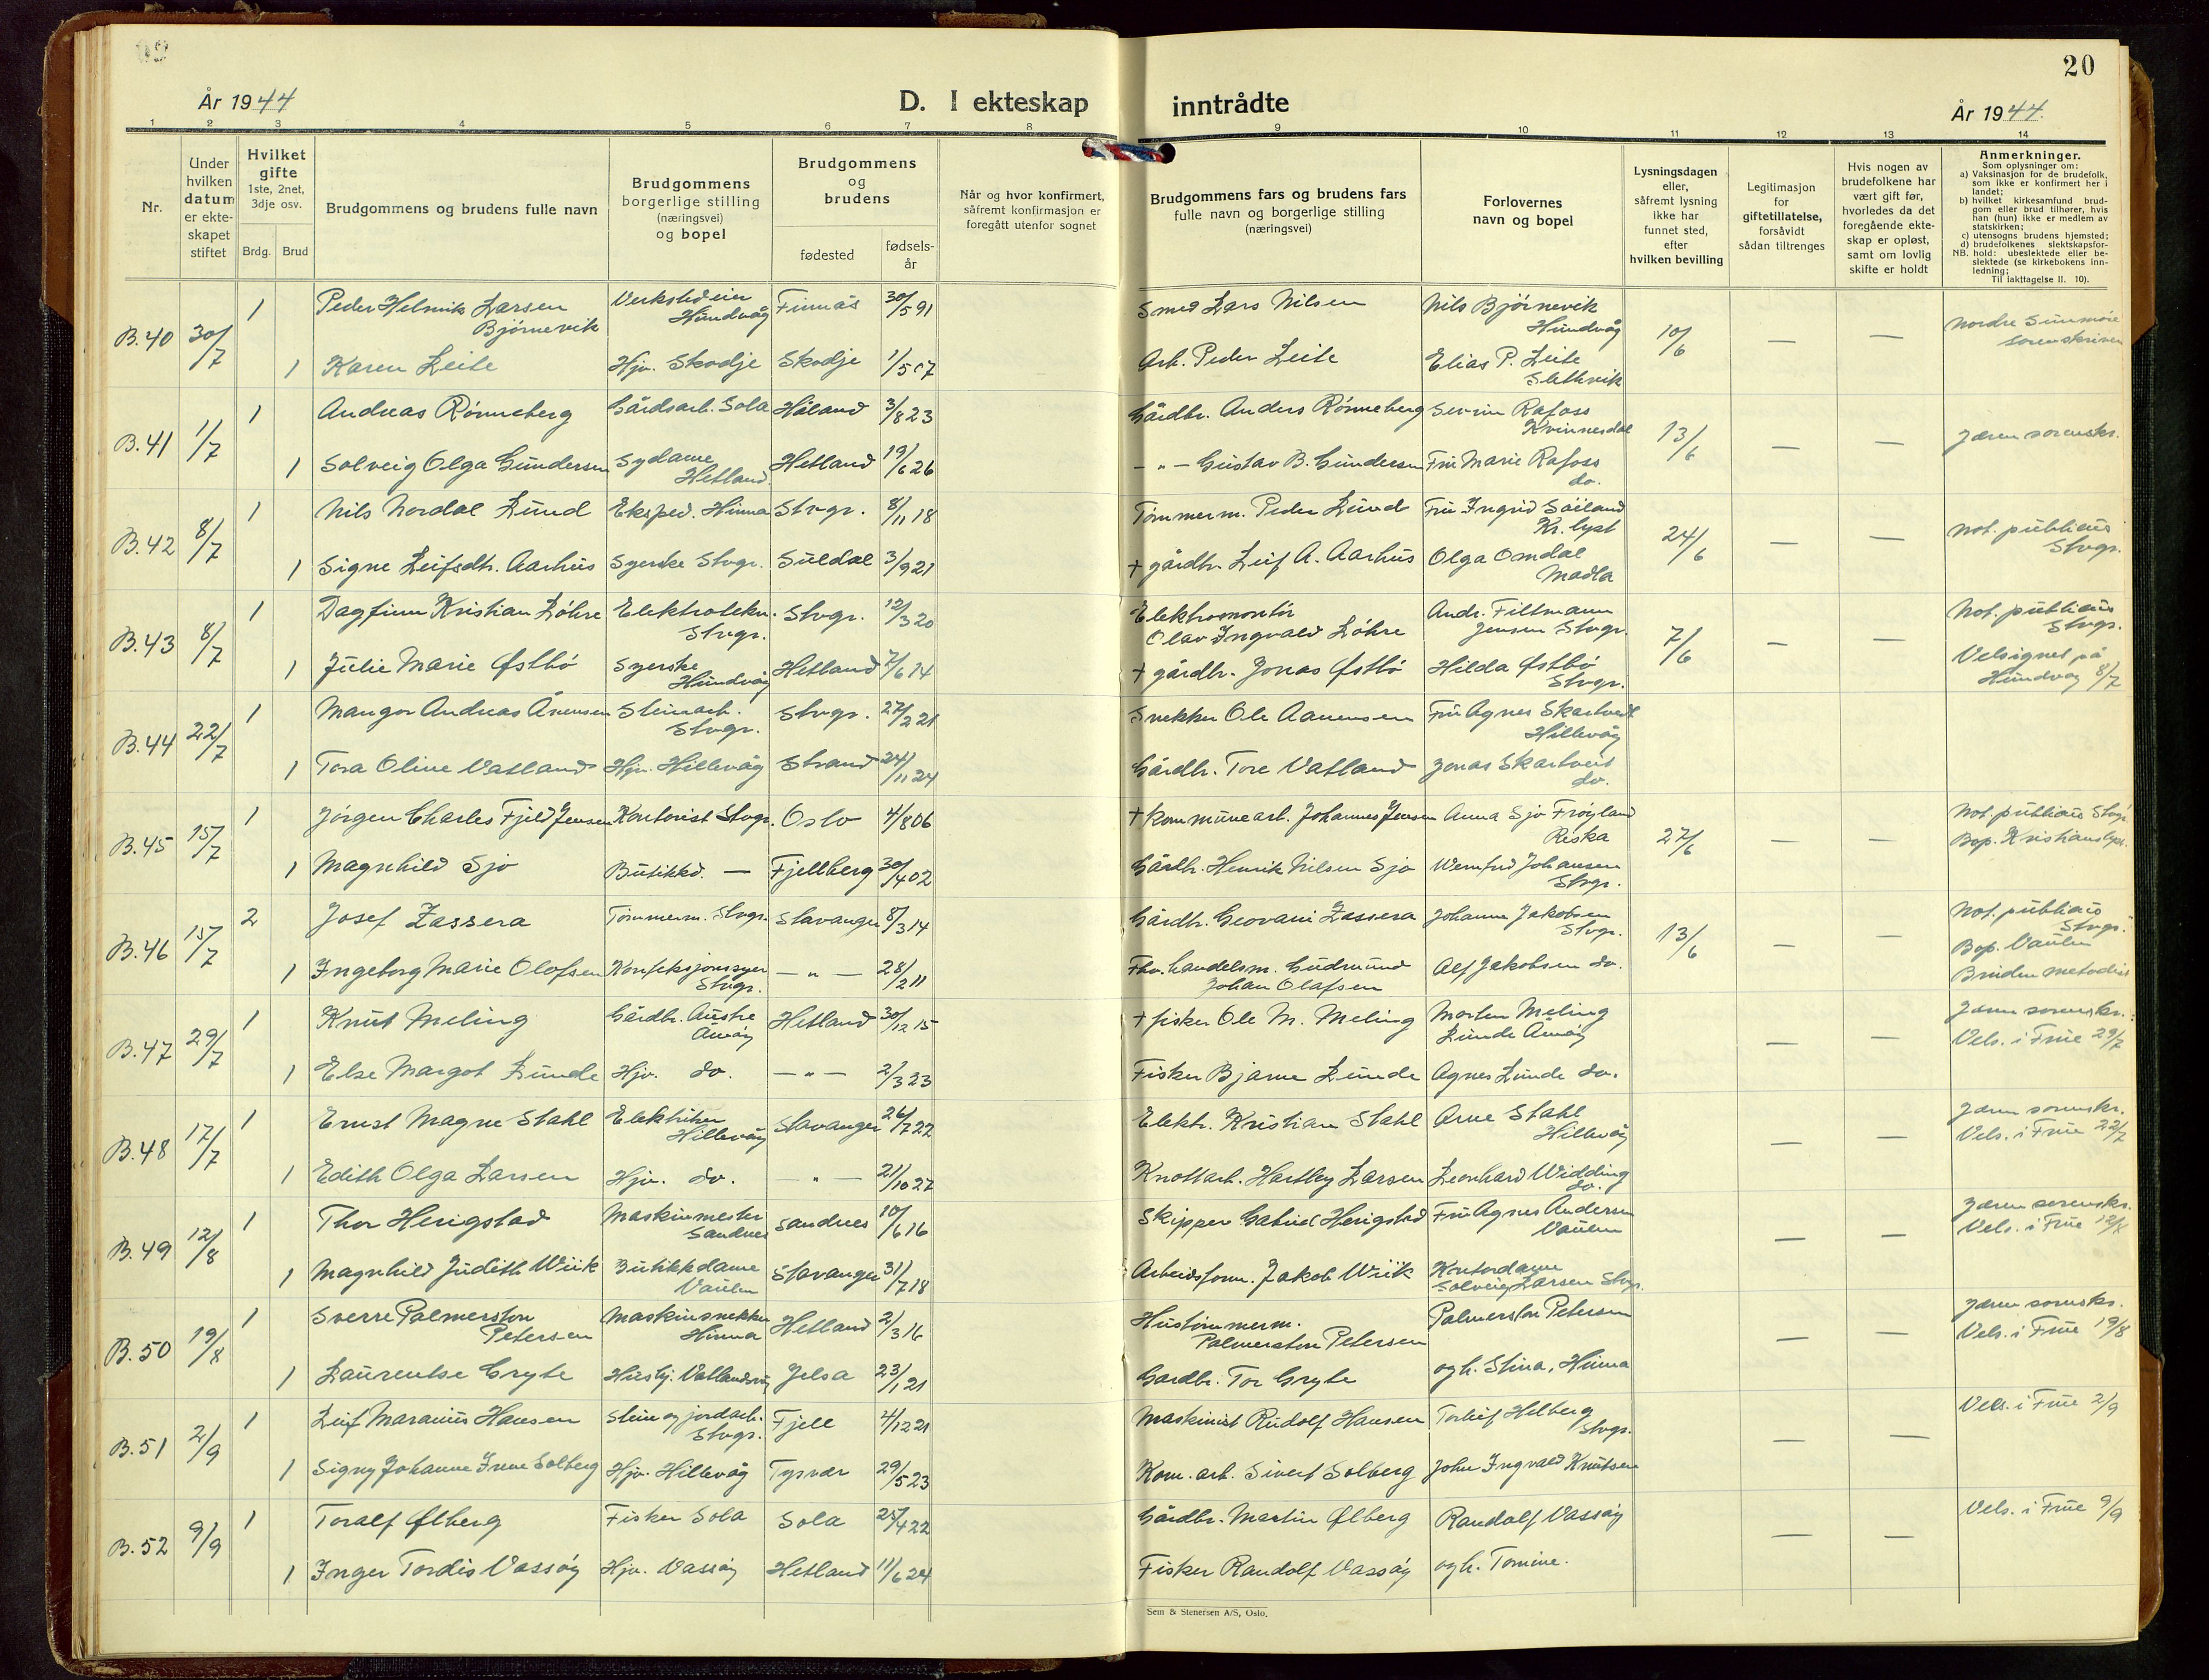 20
År 1944
D. I ekteskap
inntrådte
År 1944.
1 2 3 4 5 6 7 8 9 10 11 12 13 14
Nr.
Under
hvilken
datum
er ekte-
skapet
stiftet
Hvilket
gifte
1ste, 2net,
3dje osv.
Brdg. Brud
Brudgommens og brudens fulle navn
Brudgommens
borgerlige stilling
(næringsvei)
og bopel
Brudgommens
og
brudens
fødested
fødsels-
år
Når og hvor konfirmert,
såfremt konfirmasjon er
foregått utenfor sognet
Brudgommens fars og brudens fars
fulle navn og borgerlige stilling
(næringsvei)
Forlovernes
navn og bopel
Lysningsdagen
eller,
såfremt lysning
ikke har
funnet sted,
efter
hvilken bevilling
Legitimasjon
for
giftetillatelse,
forsåvidt
sådan tiltrenges
Hvis nogen av
brudefolkene har
vært gift før,
hvorledes da det
foregående ekte-
skap er opløst,
samt om lovlig
skifte er holdt
Anmerkninger.
Som oplysninger om:
a) Vaksinasjon for de brudefolk,
som ikke er konfirmert her i
landet;
b) hvilket kirkesamfund brud-
gom eller brud tilhører, hvis
han (hun) ikke er medlem av
statskirken;
c) utensogns brudens hjemsted;
d) brudefolkenes slektskapsfor-
NB. hold: ubeslektede eller be-
slektede (se kirkebokens inn-
ledning;
Til iakttagelse II. 10).
B.40 30/7 1 Peder Helmik Larsen Bjørnevik Verkstedeier Hundvåg Finnås 30/5 91 Smed Lars Nilsen Nils Bjørnevik Hundvåg 10/6 — — Nordre Sunmøre sorenskriver
1 Karen Leite Hjv. Skodje Skodje 1/5 07 Arb. Peder Leite Elias P. Leite
B.41 1/7 1 Andreas Rønneberg Gårdsarb. Sola Håland 3/8 23 Gårdbr. Anders Rønneberg Severin Rafoss Kvinnesdal 13/6 — — Jæren sorenskr.
1 Solveig Olga Gundersen Sydame Hetland. Hetland 19/6 26 — " — Gustav B. Gundersen Fru Marie Rafoss do.
B.42 8/7 1 Nils Nordal Lund Eksped. Hinna Stvgr. 8/11 18 Tømmerm. Peder Lund Fru Ingrid Söiland Kr. lyst 24/6 — — Not. publicus Stvgr.
1 Signe Leifsdtr. Aarhus Syerske Stvgr. Suldal 3/9 21 + gårdbr. Leif A. Aarhus Olga Omdal Madla
B.43 8/7 1 Dagfinn Kristian Løhre Elektrotekn. Stvgr. Stvgr. 12/3 20 Elektromontör Olav Ingvald Löhre Andr. Filtmann Jensen Stvgr. 7/6 — — Not. publicus Stvgr.
1 Julie Marie Østbö Syerske Hundvåg Hetland 7/6 14 + gårdbr. Jonas Østbö Hilda Østbö Stvgr. Velsignet på Hundvåg 8/7
B.44 22/7 1 Mangor Andreas Ånensen Steinarb. Stvgr. Stvgr. 27/2 21 Snekker Ole Aanensen Fru Agnes Skartveit Hillevåg
1 Tora Oline Vatland Hjv. Hillevåg Strand 24/11 24 Gårdbr. Tore Vatland Jonas Skartveit do.
B.45 15/7 1 Jørgen Charles Fjeld Jensen Kontorist Stvgr. Oslo 4/8 06 + Kommunearb. Johannes Jensen Anna Sjo Frøyland Riska 27/6 — — Not. publicus Stvgr. Bop. Kristianslyst.
1 Magnhild Sjo Butikkd. — Fjellberg 30/4 02 Gårdbr. Henrik Nilsen Sjo Johansen Stvgr.
B.46 15/7 2 Josef Zassera Tømmerm. Stvgr. Stavanger 8/3 14 Gårdbr. Geovani Zassera Johanne Jakobsen Stvgr. 13/6 — — Not. publicus Stvgr. Bop. Vaulen
1 Ingeborg Marie Olofsen Konfeksjonssyer Stvgr. — " — 28/2 11 Fhv. handelsm. Gudmund Johan Olafsen Alf Jakobsen do. Bruden metodist
B.47 29/7 1 Knut Meling Gårdbr. Austre Åmøy Hetland 30/12 15 + fisker Ole M. Meling Morten Meling Lunde Åmøy — — Jæren sorenskr. Vels. i Frue 29/7
1 Else Margot Lunde Hjv. do. — " — 2/3 23 Fisker Bjarne Lunde Agnes Lunde do.
B.48 17/7 1 Ernst Magne Stahl Elektriker Hillevåg Stavanger 26/7 22 Elektr. Kristian Stahl Arne Stahl Hillevåg — — Jæren sorenskr. Vels. i Frue 22/7
1 Edith Olga Larsen Hjv. do. — " — 21/10 27 Knottarb. Hartley Larsen Leonhard Widding do.
B.49 12/8 1 Thor Herigstad Maskinmester Sandnes Sandnes 10/6 16 Skipper Gabriel Herigstad Fru Agnes Andersen Vaulen — — Jæren sorenskr. Vels. i Frue 12/8
1 Magnhild Judith Wiik Butikkdame Vaulen Stavanger 31/7 18 Arbeidsform. Jakob Wiik Kontordame Solveig Larsen Stvgr.
B.50 19/8 1 Sverre Palmerston Petersen Maskinsnekker Hinna Hetland 2/3 16 Hustømmerm. Palmerston Petersen Palmerston Petersen — — Jæren sorenskr. Vels. i Frue 19/8
1 Laurentse Gryte Husbj. Jelsa 23/1 21 Gardbr. Tor Gryte og h. Stina, Hinna
B.51 2/9 1 Leif Maranius Hansen Stein og jordarb. Stvgr. Fjell 4/12 21 Maskinist Rudolf Hansen Torleif Helberg Stvgr. — — Vels. i Frue 2/9
1 Signy Johanne Irene Solberg Hjv. Hillevåg Tysvær 29/5 23 Kom. arb. Sivert Solberg John Ingvald Knutsen
B.52 9/9 1 Toralf Ølberg Fisker Sola Sola 25/4 22 Gårdbr. Martin Ølberg Randolf Vassøy — — Vels. i Frue 9/9
1 Inger Tordis Vassøy Hjv. Vassøy Hetland 11/6 24 Fisker Randolf Vassøy og h. Tomine.
Sem & Stenersen A/S, Oslo.